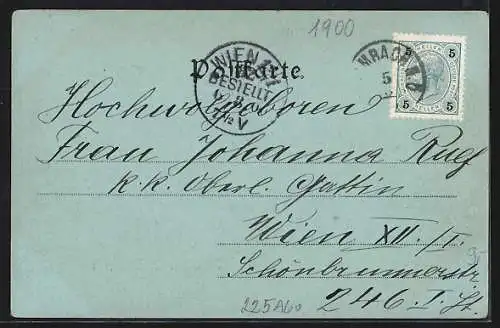 1900
Postkarte.
WIEN
BESTELLT
5 5
HELLER
5 5
Hochwolgeboren
Frau Johanna Ruef
k. k. Oberl. Gattin
Wien XII/1.
Schönbrunnerstr
246 I. St.
225Ab0